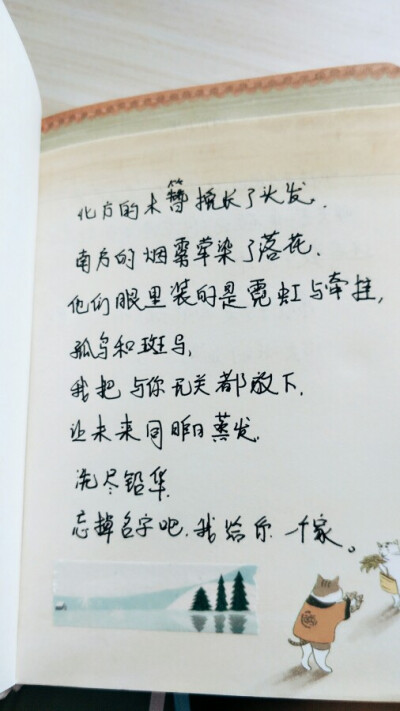 北方的木簪挽长了头发.
南方的烟雾晕染了落花.
他们眼里装的是霓虹与牵挂,
孤鸟和斑马,
我把与你无关都放下.
让未来同昨日蒸发.
洗尽铅华.
忘掉名字吧.我给你一个家。